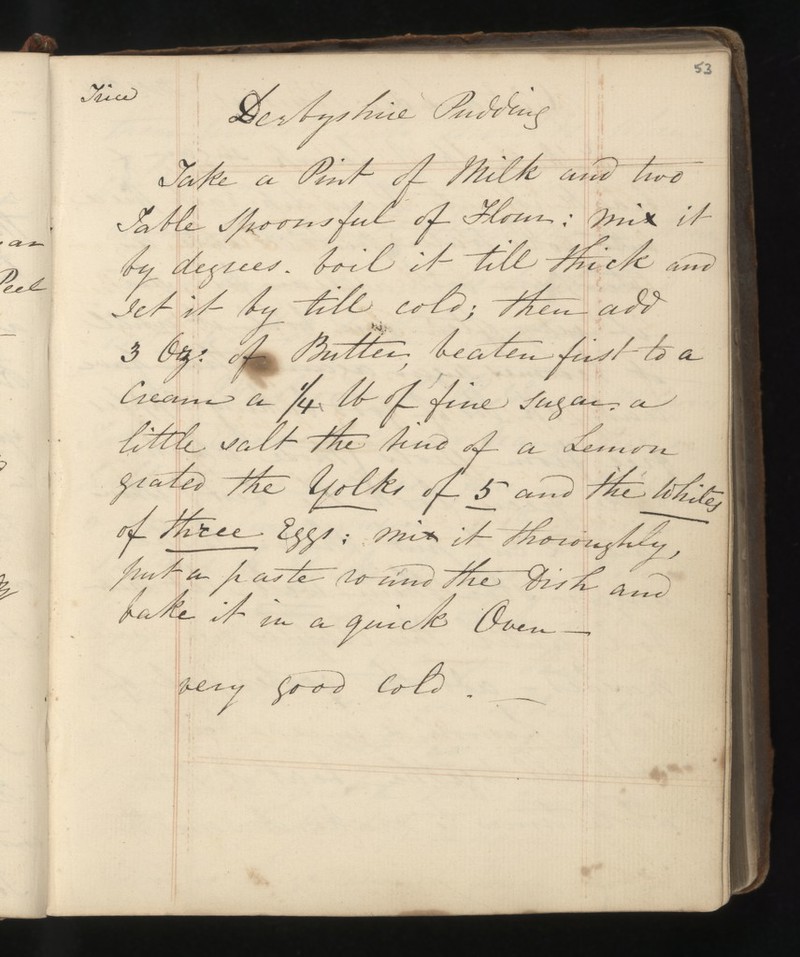 53
Tried
Derbyshire Pudding
Take a Pint of Milk and two
Table Spoonsful of Flour: mix it
by degrees. boil it till thick and
set it by till cold; then add
3 Ozs: of Butter, beaten first to a
Cream a 1/4 lb of fine sugar. a
little salt the rind of a Lemon
grated the Yolks of 5 and the Whites
of three Eggs: mix it thoroughly,
put a paste round the Dish and
bake it in a quick Oven—
very good cold. —
Peel